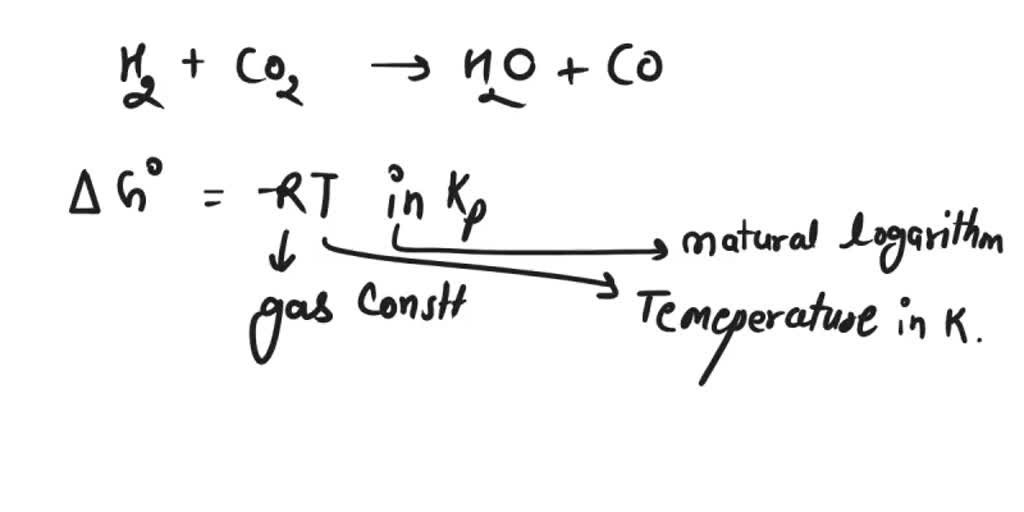 H₂ + CO₂ → H₂O + CO
ΔG° = -RT in Kp
natural logarithm
gas Constt
Temeperature in K.